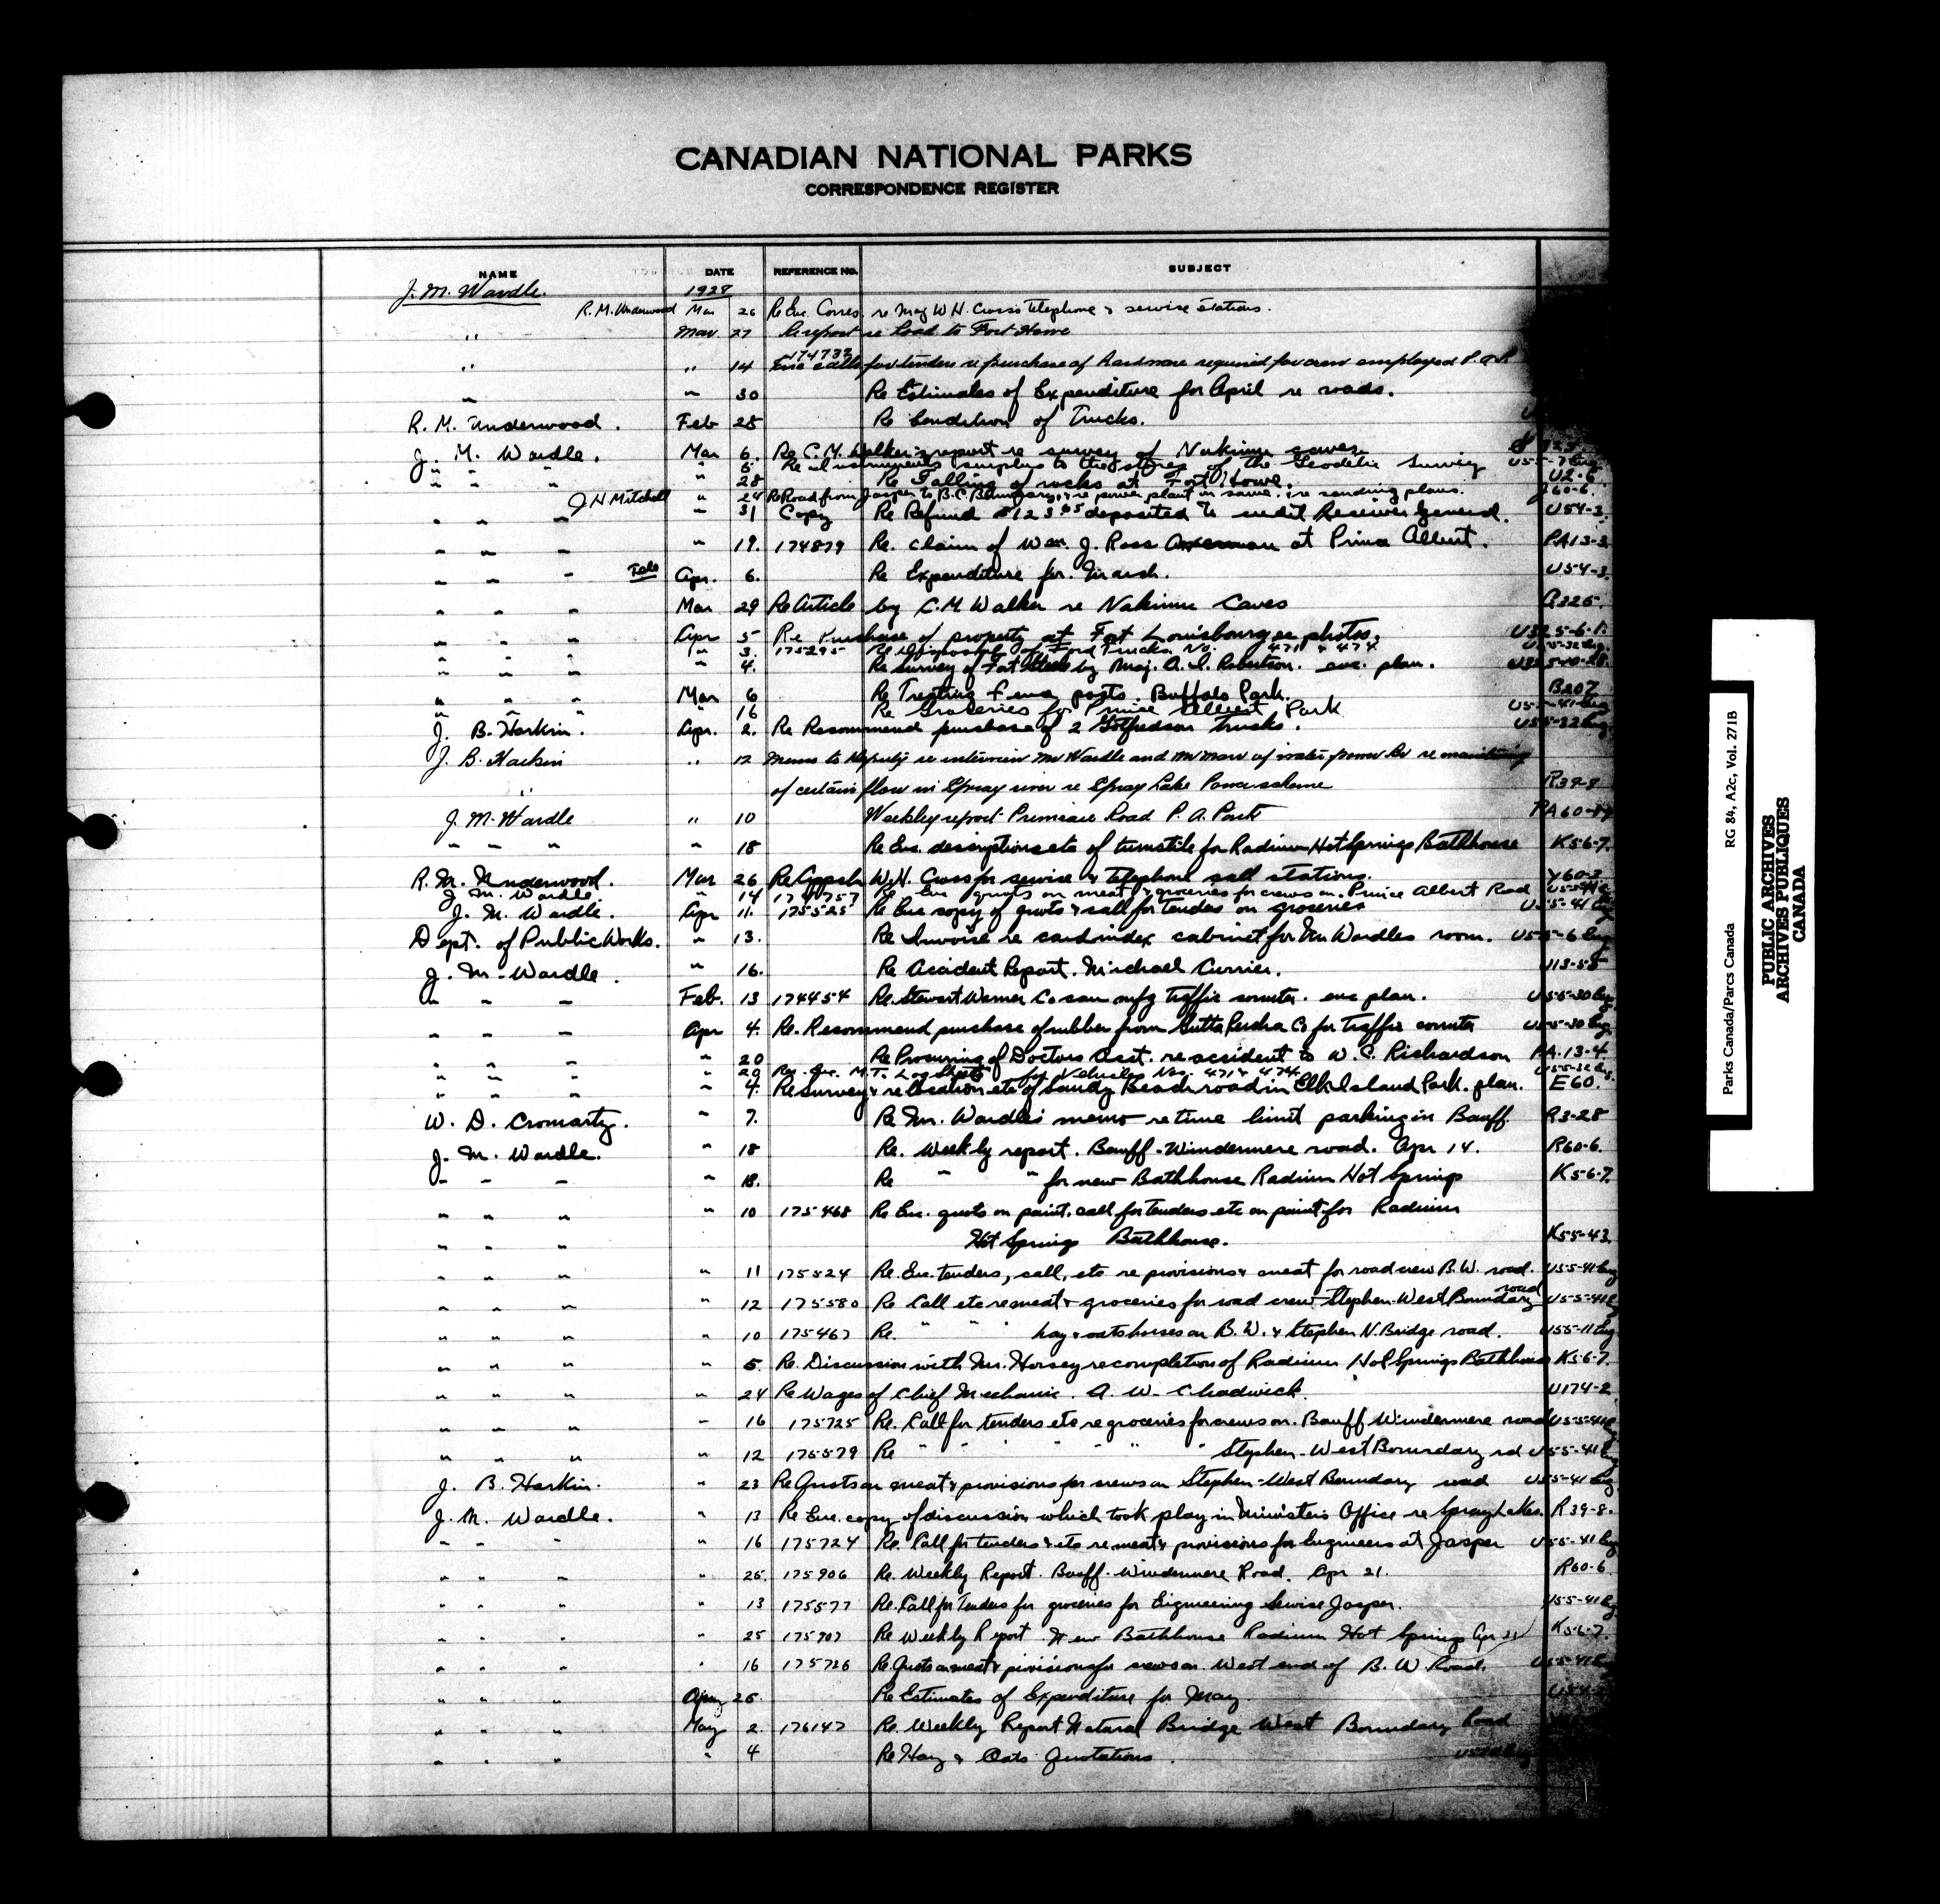 CANADIAN NATIONAL PARKS
CORRESPONDENCE REGISTER
NAME DATE REFERENCE No. SUBJECT
J. M. Wardle. 1928
R. M. Underwood Mar 26 Re Enc. Corres. re Maj W. H. Cross Telephone & service stations.
" Mar. 27 Re report re Road to Fort Howe
174732
" " 14 Enc calls for tenders re purchase of hardware required for crew employed P.A.P.
" " 30 Re Estimates of Expenditure for April re roads.
R. M. Underwood. Feb 28 Re Condition of Trucks.
J. M. Wardle. Mar 6. Re C. M. Walker's report re survey of Nakimu caves
" " " " 5 Re Instruments surplus to the stores of the Geodetic Survey U55-7 Eng
" " " " 28 Re Falling of rocks at Fort Howe. U2-6
J H Mitchell " 24 Re Road from Jasper to B.C. Boundary, & re power plant on same, & re sending plans. J60-6.
" " " " 31 Copy Re Refund of 123.65 deposited to credit Receiver General. U54-3.
" " " " 19. 174879 Re. claim of Wm. J. Ross at Prince Albert. PA13-3
" " " Tele Apr. 6. Re Expenditure for March. U54-3.
" " " Mar 29 Re Article by C. M. Walker re Nakimu Caves G325.
" " " Apr 5 Re Purchase of property at Fort Louisbourg re photos. U325-6-1.
" " " " 3. 175295 Re Disposal of Ford Trucks No. 471 & 474 U55-32 Eng.
" " " " 4. Re survey of Fort by Maj. A. I. Robertson. enc. plan.
" " " Mar 6 Re Treating fence posts. Buffalo Park. B207
" " " " 16 Re Groceries for Prince Albert Park U55-41 Eng
J. B. Harkin. Apr. 2. Re Recommend purchase of 2 Gotfredson Trucks. U55-32 Eng.
J. B. Harkin " 12 Memo to Deputy re interview Mr Wardle and Mr of water power Br re maintaining
" of certain flow in Spray river re Spray Lake Power scheme R39-8
J. M. Wardle " 10 Weekly report Road P. A. Park
" " " " 18 Re Enc. descriptions etc of turnstile for Radium Hot Springs Bathhouse K56-7.
R. M. Underwood. Mar 26 Re Appeln W. H. Cross for service & telephone sall stations. Y60-2
J. M. Wardle " 14 174757 Re Enc quots on meat & groceries for crews on Prince Albert Road U55-41 E
J. M. Wardle. Apr 11. 175525 Re Enc copy of quots & call for tenders on groceries U55-41 Eng
Dept. of Public Works. " 13. Re Invoice re card index cabinet for Mr Wardles room. U55-6 Eng
J. M. Wardle. " 16. Re Accident Report. Michael Currier. U13-58
" " " Feb. 13 174454 Re Stewart Warner Co can mfg traffic counter. enc plan. U55-30 Eng
" " " Apr 4. Re. Recommend purchase of rubber from Gutta Percha Co for traffic counter U55-30 Eng
" " " " 20 Re Procuring of Doctors Acct. re accident to W. C. Richardson PA-13-4.
" " " " 20 Re. M.T. Log Sheets for Vehicles Nos. 471 & 474. U55-32 Eng.
" " " " 4. Re survey & relocation etc of Sandy Beach road in Elk Island Park. plan. E60.
W. D. Cromarty. " 7. Re Mr. Wardle's memo re time limit parking in Banff. R3-28
J. M. Wardle. " 18 Re. Weekly report. Banff-Windermere road. Apr 14. R60-6.
" " " " 18. Re " " for new Bathhouse Radium Hot Springs K56-7.
" " " " 10 175468 Re Enc. quots on paint. call for tenders etc on paint for Radium
" " " Hot Springs Bathhouse. K55-43.
" " " " 11 175524 Re. Enc. tenders, call, etc re provisions & meat for road crew B.W. road. U55-41 Eng
" " " " 12 175580 Re Call etc re meat & groceries for road crew Stephen-West Boundary road U55-41 E
" " " " 10 175467 Re. " " " hay & oats horses on B.W. & Stephen N. Bridge road. U55-11 Eng
" " " " 5. Re. Discussion with Mr. Horsey re completion of Radium Hot Springs Bathhouse K56-7.
" " " " 24 Re Wages of Chief Mechanic. A. W. Chadwick. U174-2
" " " " 16 175725 Re. Call for tenders etc re groceries for crews on. Banff Windermere road U55-41 E
" " " " 12 175579 Re " " " " " " Stephen-West Boundary rd U55-41 E
J. B. Harkin. " 23 Re Quots on meat & provisions for crews on Stephen-West Boundary road U55-41 Eng.
J. M. Wardle. " 13 Re Enc. copy of discussion which took play in Ministers Office re Spray Lakes. R39-8.
" " " " 16 175724 Re. Call for tenders & etc re meat & provisions for Engineers at Jasper U55-41 Eng
" " " " 25. 175906 Re. Weekly Report. Banff-Windermere Road. Apr 21. R60-6
" " " " 13 175577 Re. Call for Tenders for groceries for Eigineering Service Jasper. U55-41 Eg.
" " " " 25 175907 Re Weekly Report New Bathhouse Radium Hot Springs Apr 21 K56-7.
" " " " 16 175726 Re Quots on meat & provisions for crews on West end of B. W. Road. U55-41 E
" " " Apr 25. Re Estimates of Expenditure for May.
" " " May 2. 176147 Re. Weekly Report Natural Bridge West Boundary Road
" " " " 4 Re Hay & Oats Quotations.
Parks Canada/Parcs Canada RG 84, A2c, Vol. 271B
PUBLIC ARCHIVES
ARCHIVES PUBLIQUES
CANADA